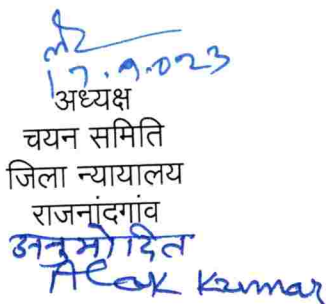 17.9.023
अध्यक्ष
चयन समिति
जिला न्यायालय
राजनांदगांव
अनुमोदित
Alok Kumar